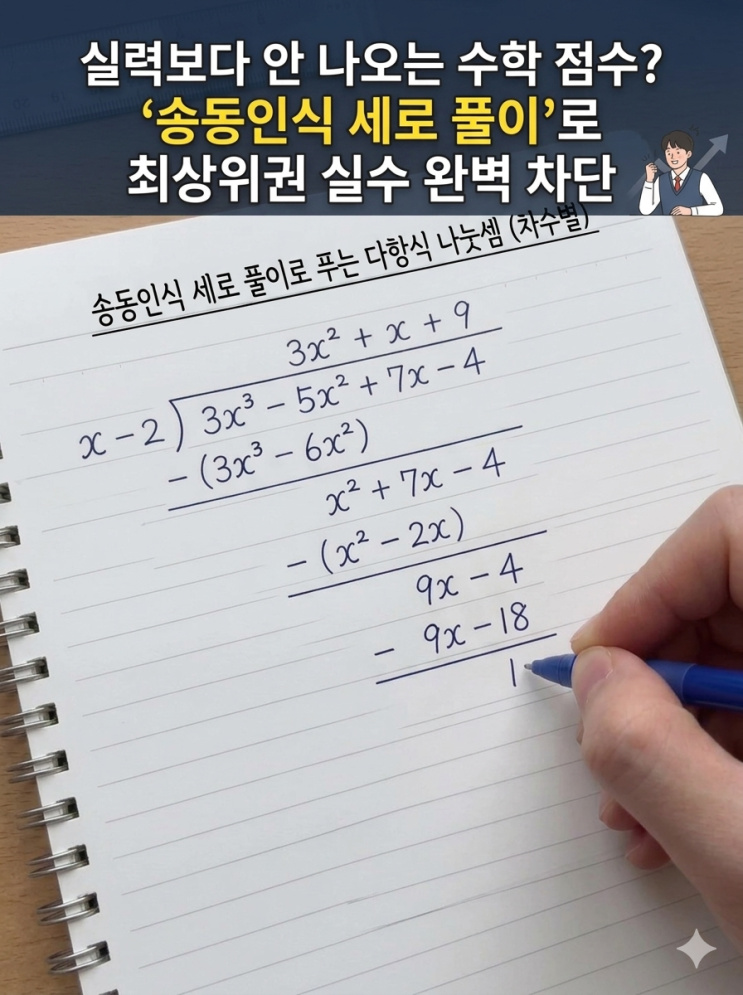 실력보다 안 나오는 수학 점수?
‘송동인식 세로 풀이’로
최상위권 실수 완벽 차단
송동인식 세로 풀이로 푸는 다항식 나눗셈 (차수별)
3x² + x + 9
x - 2 ) 3x³ - 5x² + 7x - 4
- (3x³ - 6x²)
x² + 7x - 4
- (x² - 2x)
9x - 4
- 9x - 18
1